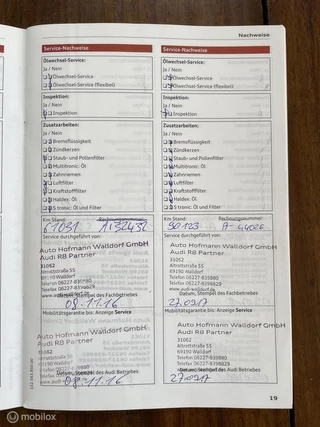 Nachweise
Service-Nachweise
Ölwechsel-Service:
Ja / Nein
Ölwechsel-Service
Ölwechsel-Service (flexibel)
Inspektion:
Ja / Nein
Inspektion
Zusatzarbeiten:
Ja / Nein
Bremsflüssigkeit
Zündkerzen
Staub- und Pollenfilter
Multitronic: Öl
Zahnriemen
Luftfilter
Kraftstofffilter
Haldex: Öl
S tronic: Öl und Filter
Km Stand:
61031
Service durchgeführt von:
Auto Hofmann Walldorf GmbH
Audi R8 Partner
31062
Altrottstraße 55
69190 Walldorf
Telefon 06227-839880
Datum, Stempel des Fachbetriebes
08.11.16
Mobilitätsgarantie bis: Anzeige Service
Auto Hofmann Walldorf GmbH
Audi R8 Partner
31062
Altrottstraße 55
69190 Walldorf
Datum, Stempel des Audi Betriebes
08.11.16
Service-Nachweise
Ölwechsel-Service:
Ja / Nein
Ölwechsel-Service
Ölwechsel-Service (flexibel)
Inspektion:
Ja / Nein
Inspektion
Zusatzarbeiten:
Ja / Nein
Bremsflüssigkeit
Zündkerzen
Staub- und Pollenfilter
Multitronic: Öl
Zahnriemen
Luftfilter
Kraftstofffilter
Haldex: Öl
S tronic: Öl und Filter
Km Stand: Rechnungsnummer:
90123
Service durchgeführt von:
Auto Hofmann Walldorf GmbH
Audi R8 Partner
31062
Altrottstraße 55
69190 Walldorf
Telefon 06227-839880
Datum, Stempel des Fachbetriebes
27.0917
Mobilitätsgarantie bis: Anzeige Service
Auto Hofmann Walldorf GmbH
Audi R8 Partner
31062
Altrottstraße 55
69190 Walldorf
Telefon 06227-839880
Datum, Stempel des Audi Betriebes
27.0917
19
© mobilox